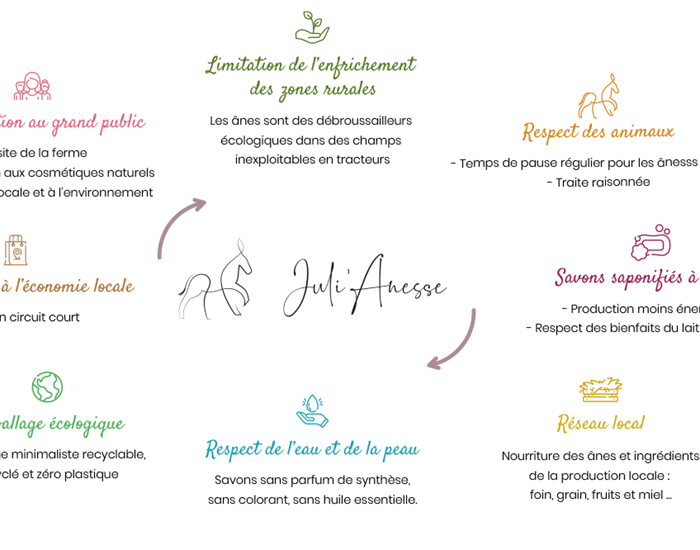 Limitation de l'enfrichement
des zones rurales
Les ânes sont des débroussailleurs
écologiques dans des champs
inexploitables en tracteurs
Respect des animaux
- Temps de pause régulier pour les ânesss
- Traite raisonnée
Savons saponifiés à
- Production moins
- Respect des bienfaits du lait
Réseau local
Nourriture des ânes et ingrédients
de la production locale :
foin, grain, fruits et miel ...
Respect de l'eau et de la peau
Savons sans parfum de synthèse,
sans colorant, sans huile essentielle.
écologique
minimaliste recyclable,
et zéro plastique
à l'économie locale
circuit court
au grand public
de la ferme
aux cosmétiques naturels
et à l'environnement
Juli'Anesse